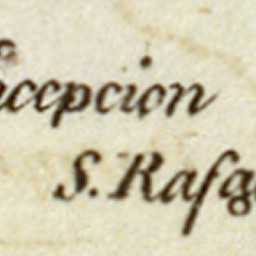 ncepcion
S. Rafa